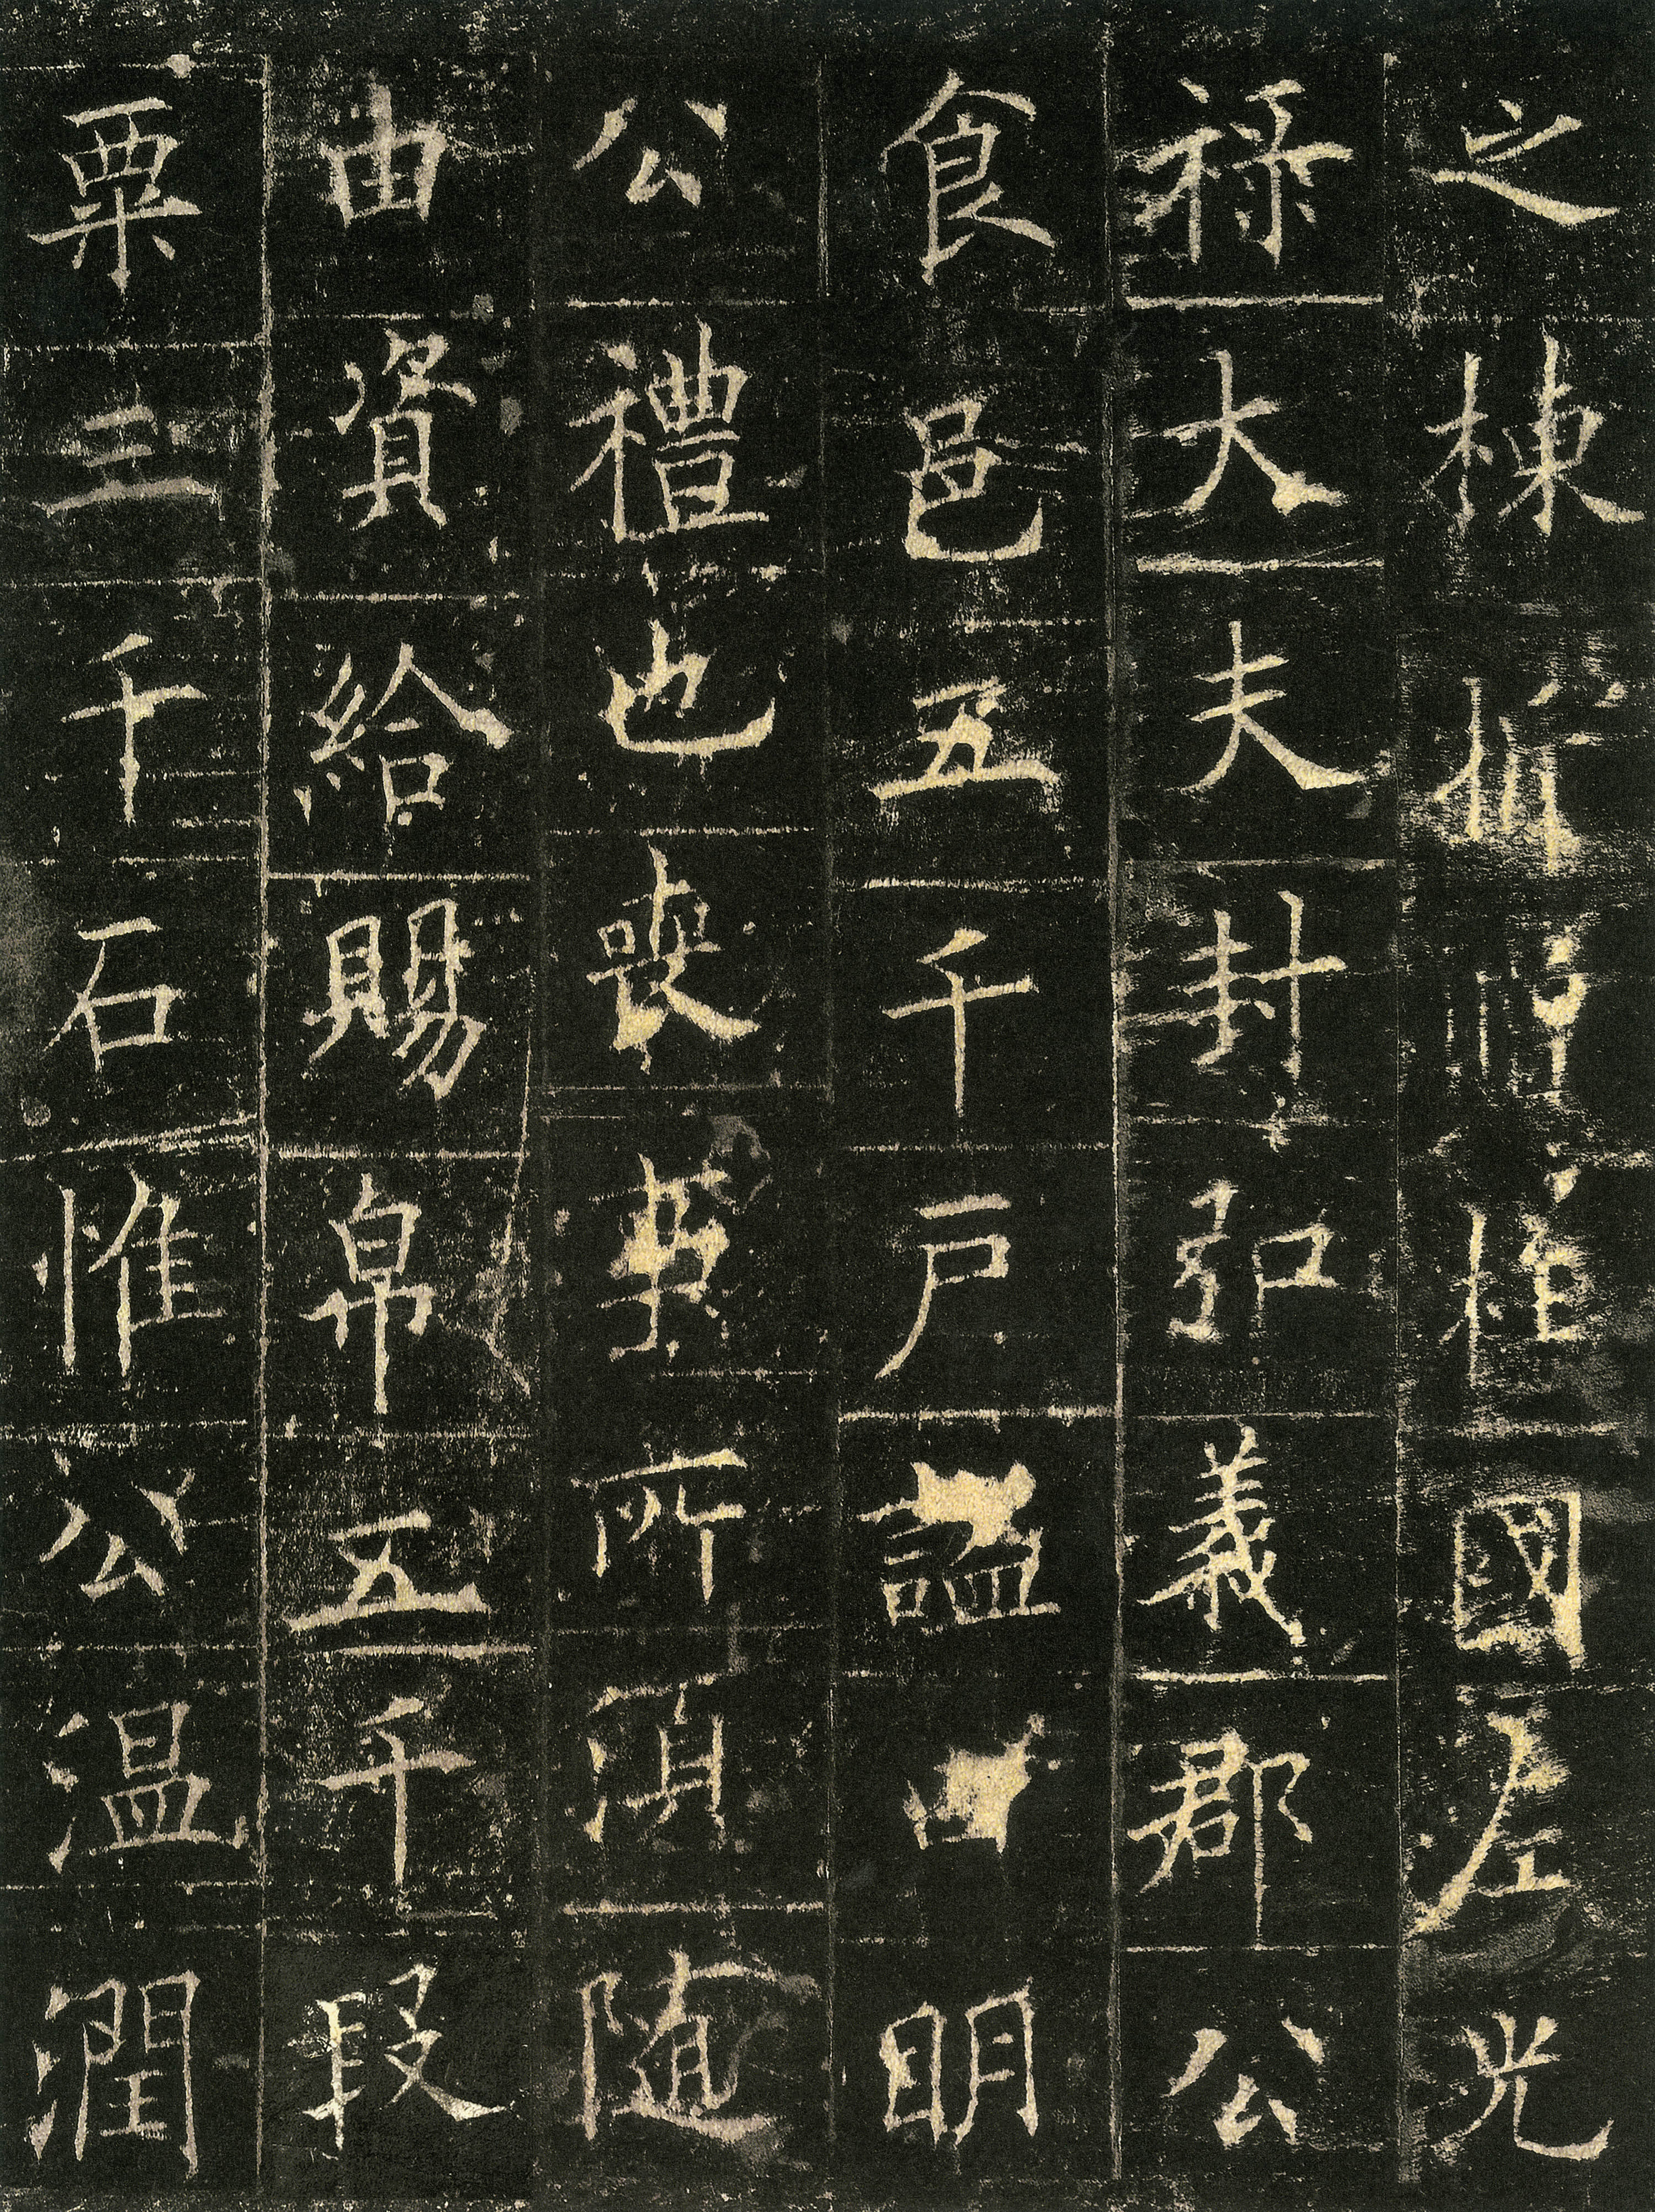 之棟柱國左光
祿大夫封弘義郡公
食邑五千戶謚曰明
公禮也喪事所須隨
由資給賜帛五千段
粟三千石惟公溫潤